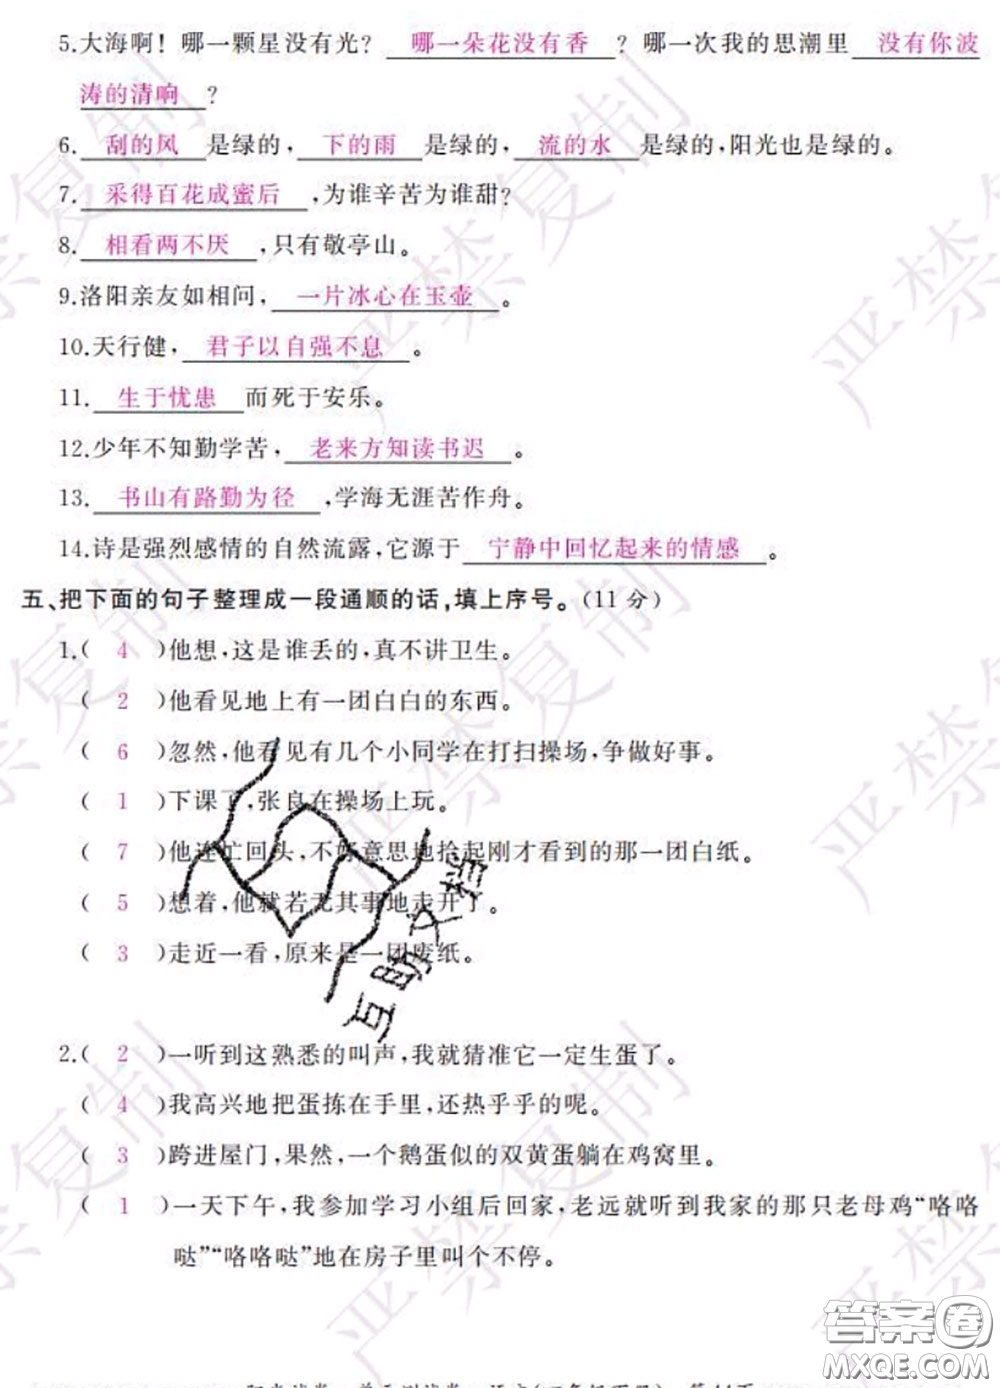 5.大海啊！哪一颗星没有光？ 哪一朵花没有香 ？哪一次我的思潮里 没有你波
涛的清响 ？
6. 刮的风 是绿的， 下的雨 是绿的， 流的水 是绿的，阳光也是绿的。
7. 采得百花成蜜后 ，为谁辛苦为谁甜？
8. 相看两不厌 ，只有敬亭山。
9.洛阳亲友如相问， 一片冰心在玉壶 。
10.天行健， 君子以自强不息 。
11. 生于忧患 而死于安乐。
12.少年不知勤学苦， 老来方知读书迟 。
13. 书山有路勤为径 ，学海无涯苦作舟。
14.诗是强烈感情的自然流露，它源于 宁静中回忆起来的情感 。
五、把下面的句子整理成一段通顺的话，填上序号。（11分）
1.（ 4 ）他想，这是谁丢的，真不讲卫生。
（ 2 ）他看见地上有一团白白的东西。
（ 6 ）忽然，他看见有几个小同学在打扫操场，争做好事。
（ 1 ）下课了，张良在操场上玩。
（ 7 ）他连忙回头，不好意思地拾起刚才看到的那一团白纸。
（ 5 ）想着，他就若无其事地走开了。
（ 3 ）走近一看，原来是一团废纸。
互助文档
2.（ 2 ）一听到这熟悉的叫声，我就猜准它一定生蛋了。
（ 4 ）我高兴地把蛋拣在手里，还热乎乎的呢。
（ 3 ）跨进屋门，果然，一个鹅蛋似的双黄蛋躺在鸡窝里。
（ 1 ）一天下午，我参加学习小组后回家，老远就听到我家的那只老母鸡“咯咯
哒”“咯咯哒”地在房子里叫个不停。
严禁复制
答案圈
MXQE.COM